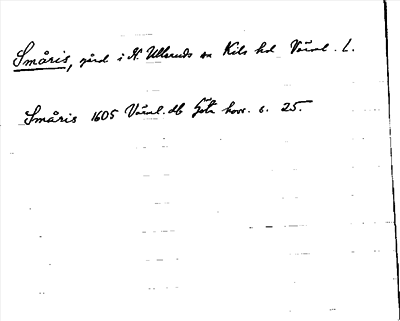 Småris, gård i N. Ulleruds sn Kils hd Värml. L.
Småris 1605 Värml. db Göta hovr. s. 25.